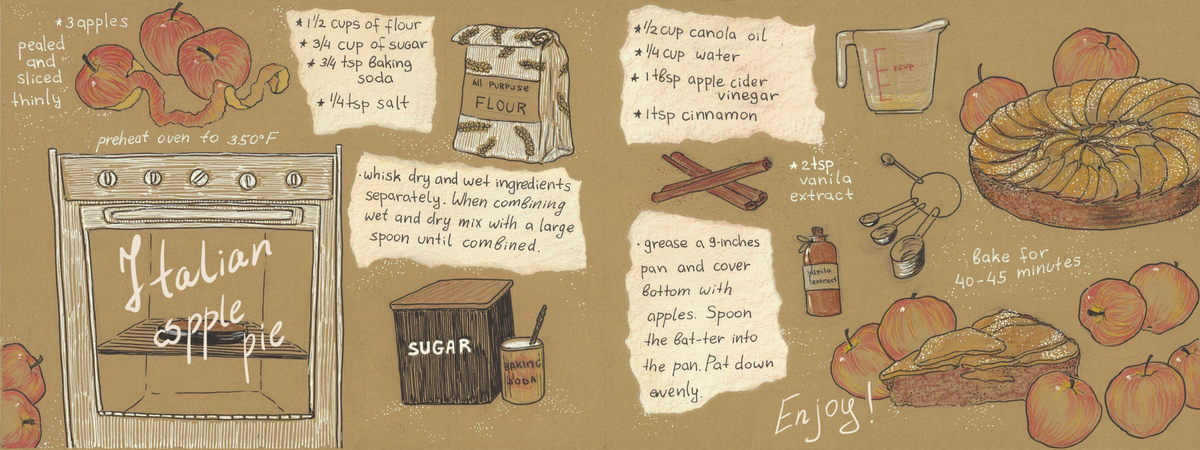 *3 apples
pealed
and
sliced
thinly
preheat oven to 350°F
Italian
apple
pie
* 1 1/2 cups of flour
* 3/4 cup of sugar
* 3/4 tsp baking
soda
* 1/4 tsp salt
All Purpose
FLOUR
·whisk dry and wet ingredients
separately. When combining
wet and dry mix with a large
spoon until combined.
SUGAR
BAKING
SODA
*1/2 cup canola oil
*1/4 cup water
* 1 tbsp apple cider
vinegar
*1 tsp cinnamon
1 CUP
*2 tsp
vanila
extract
vanila
extract
· grease a 9-inches
pan and cover
bottom with
apples. Spoon
the bat-ter into
the pan. Pat down
evenly.
Bake for
40-45 minutes
Enjoy!